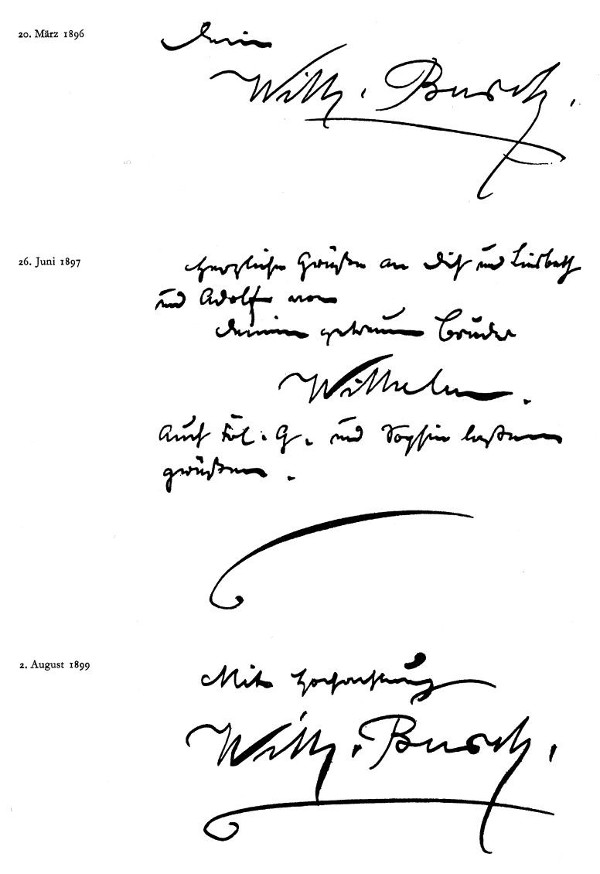 20. März 1896
Dein
Wilh. Busch.
26. Juni 1897
Herzliche Grüße an Dich und Lisbeth
und Adolf von
Deinem getreuen Bruder
Wilhelm.
Auch Frl. G. und Sophie laßen
grüßen.
2. August 1899
Mit Hochachtung
Wilh. Busch.